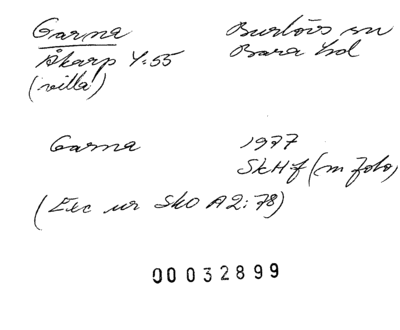 Garna Burlövs sn
Åkarp 4:55 Bara hd
(villa)
Garna 1977
SkHf (m foto)
(Exc ur SkO A2:78)
00032899